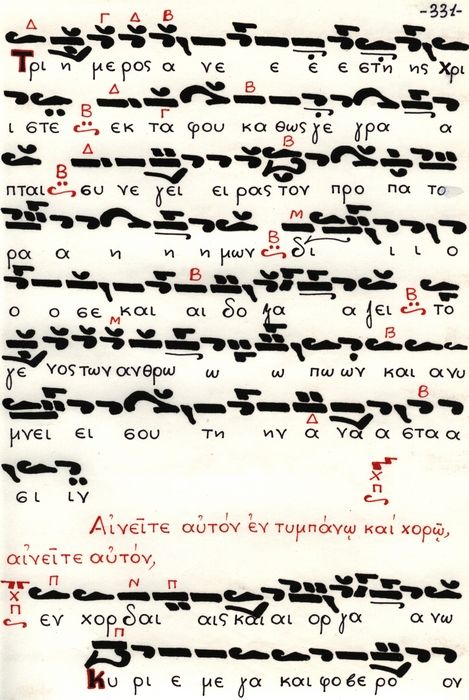 -331-
Δ Γ Δ Β
Τρι η με ρος α νε ε ε ε στη ης Χρι
Δ Β
ι στε Β εκ τα Γ φου κα θως γε γρα α
Δ Β
πται Β συ νε γει ει ρας τον προ πα το
Μ
ρα α η η η μων Β δι ι ι ο
Β
ο ο σε και αι δο ξα α ζει Β το
Μ Β
γε νος των ανθρω ω ω πω ων και ανυ
Β
μνει ει σου τη ην α Δ να α στα α
σι ιν
Αἰνεῖτε αὐτόν ἐν τυμπάνῳ καί χορῷ,
αἰνεῖτε αὐτόν,
Π Ν Π
εν χορ δαι αις και αι ορ γα α νω
Π
Κυ ρι ε με γα και φο βε ρο ον